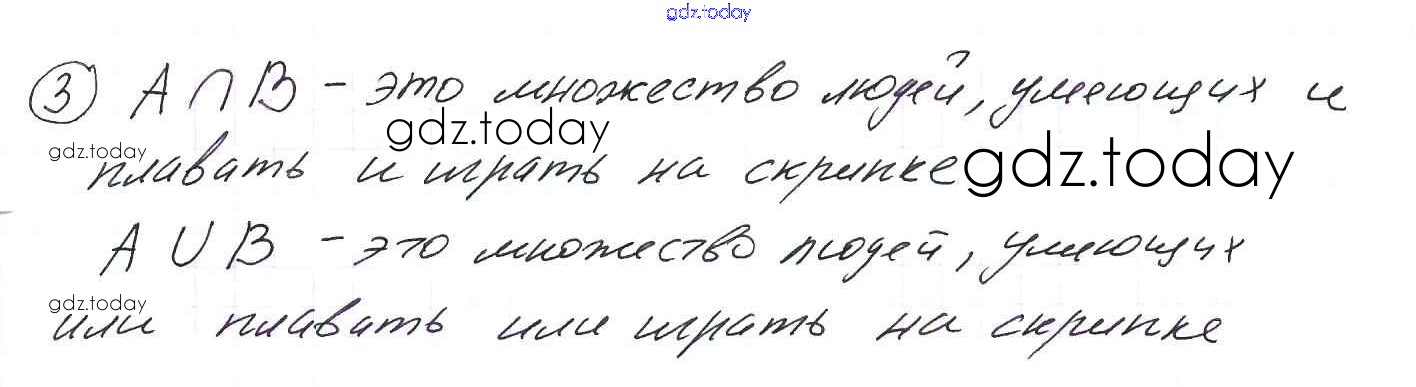 gdz.today
③ A ∩ B – это множество людей, умеющих и
gdz.today
gdz.today
плавать и играть на скрипке
gdz.today
A ∪ B – это множество людей, умеющих
gdz.today
или плавать или играть на скрипке